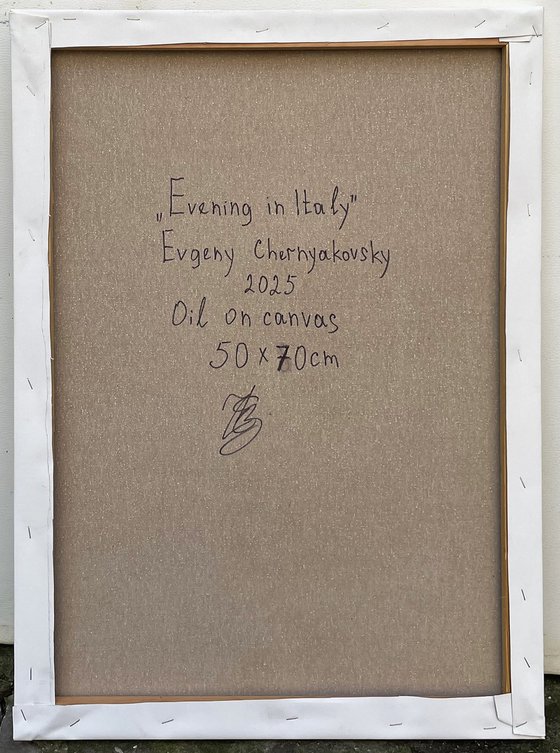 „Evening in Italy"
Evgeny Chernyakovsky
2025
Oil on canvas
50 x 70cm